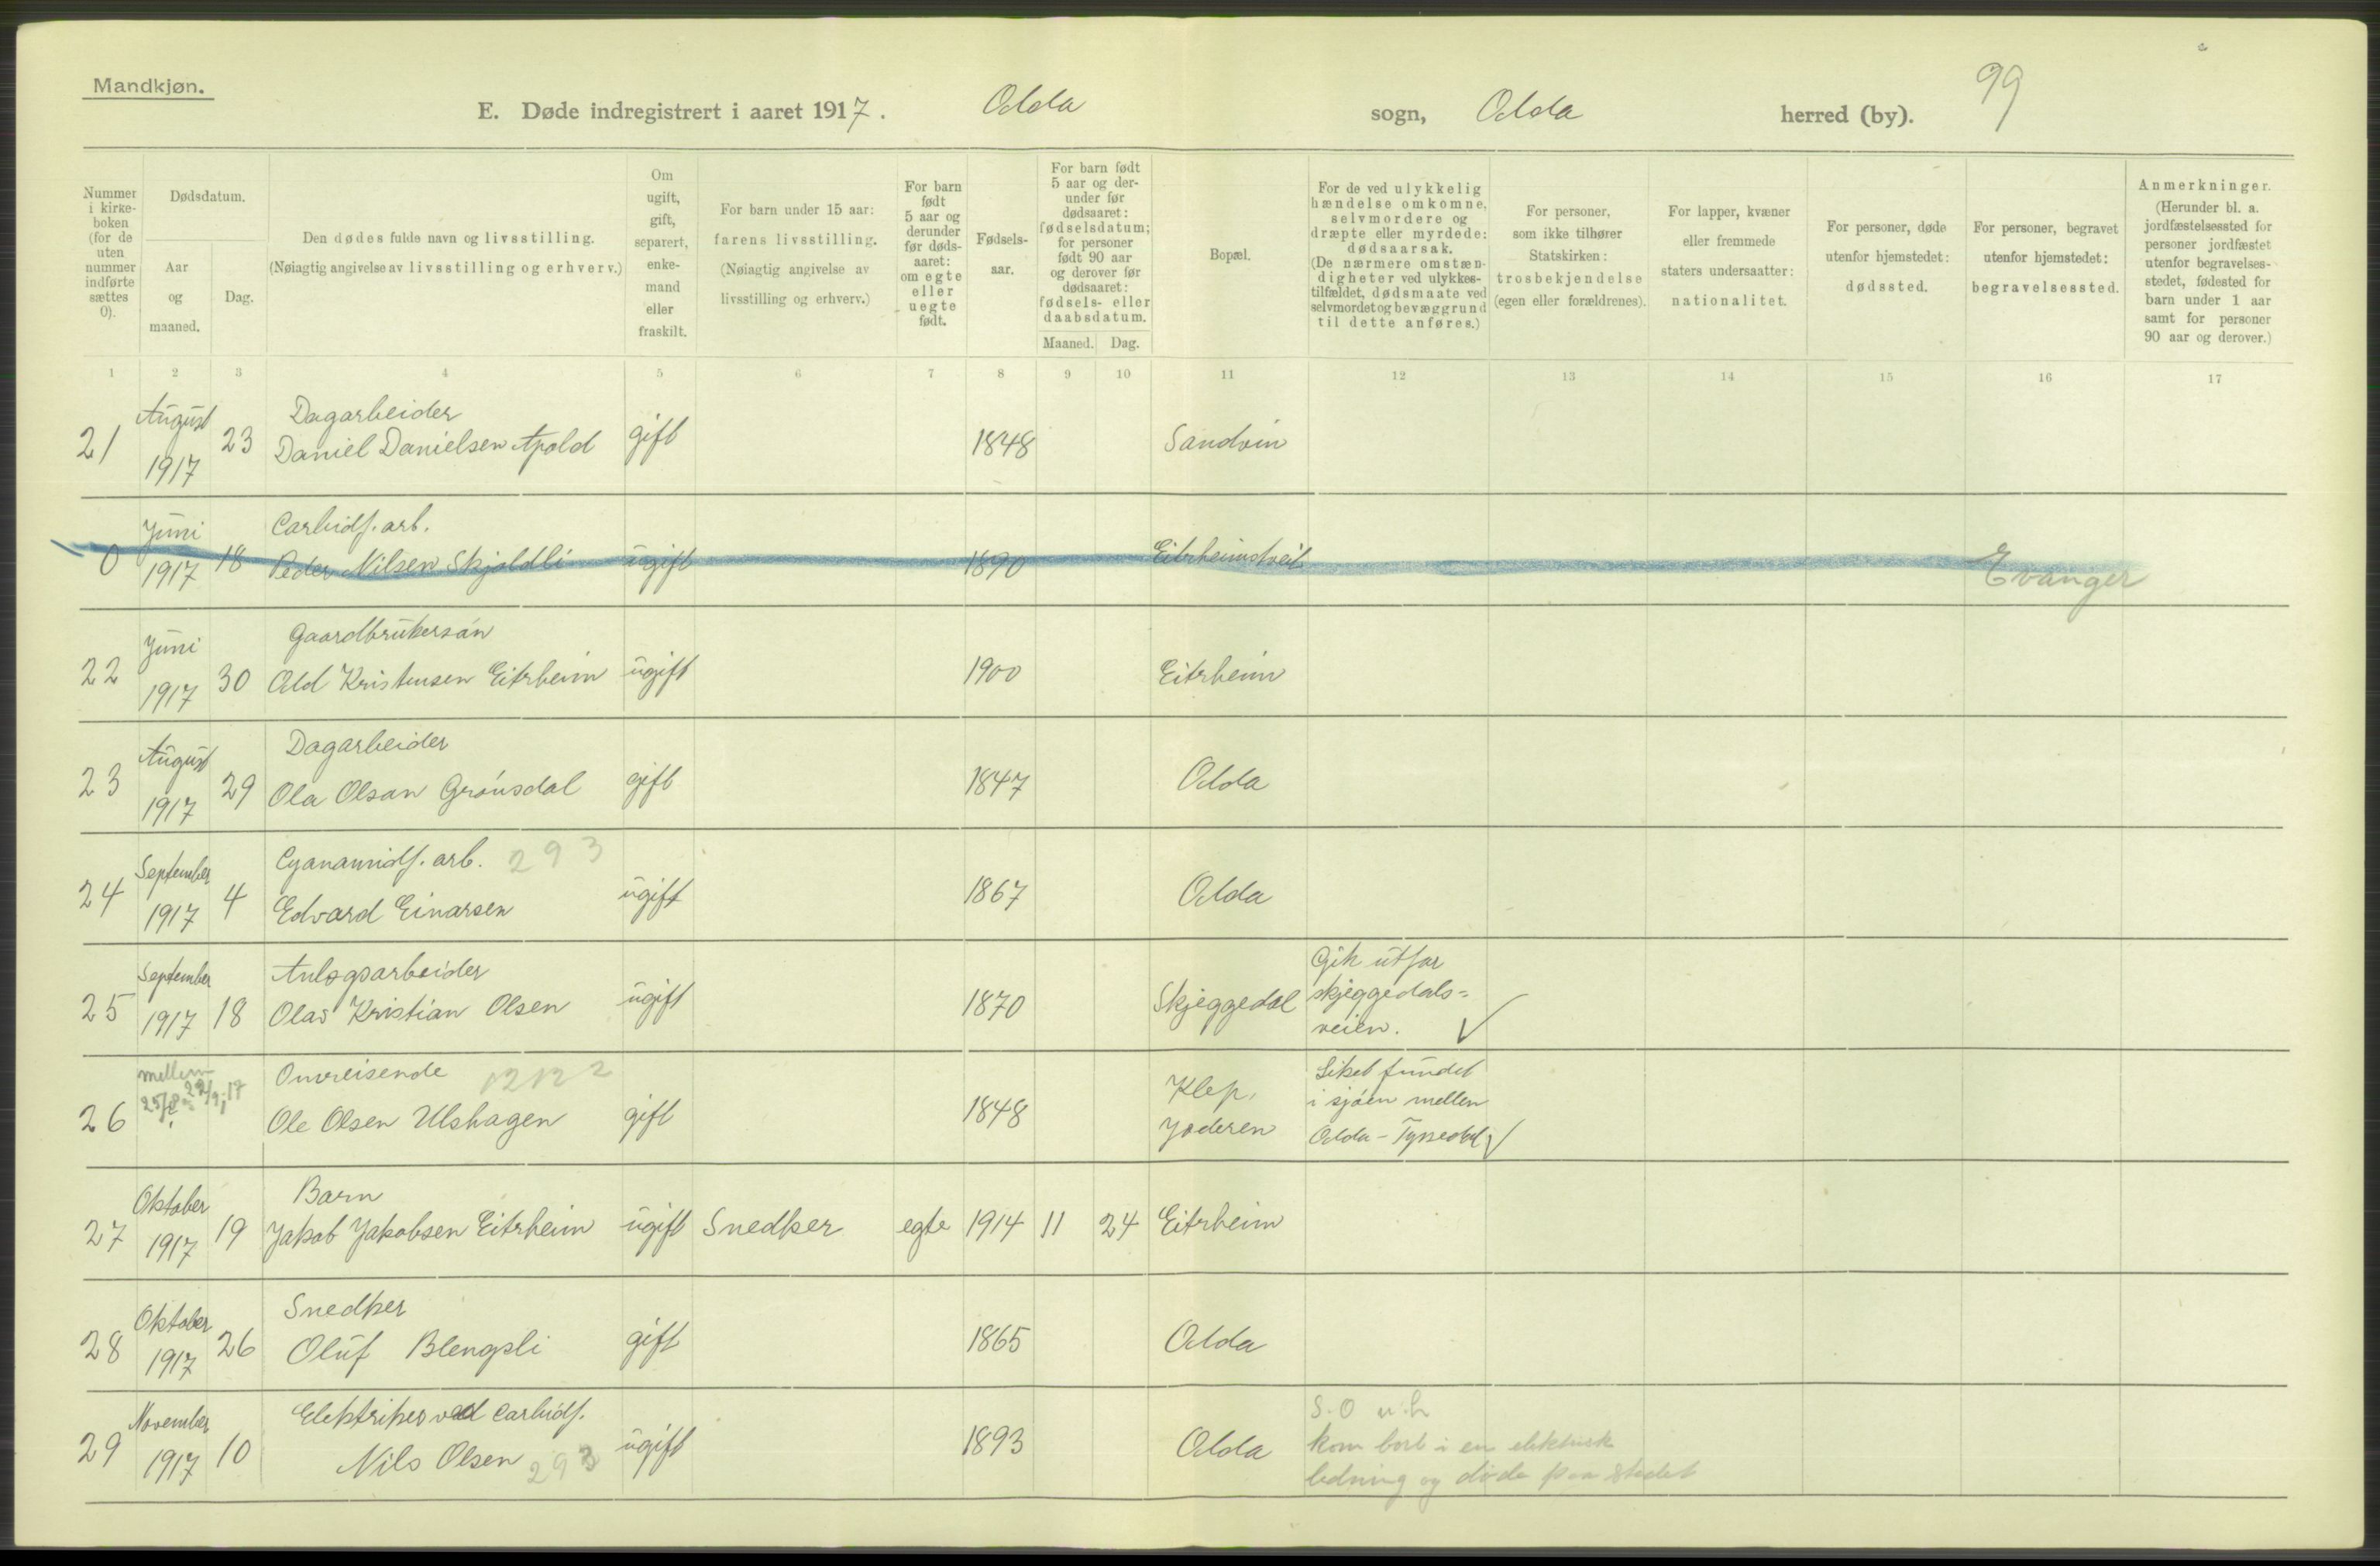 Mandkjøn.
99
E. Døde indregistrert i aaret 1917. Odda sogn, Odda herred (by).
Nummer i kirke- boken (for de uten nummer indførte sættes 0).
Dødsdatum.
Aar og maaned.
Dag.
Den dødes fulde navn og livsstilling.
(Nøiagtig angivelse av livsstilling og erhverv.)
Om ugift, gift, separert, enke- mand eller fraskilt.
For barn under 15 aar: farens livsstilling. (Nøiagtig angivelse av livsstilling og erhverv.)
For barn født 5 aar og derunder før døds- aaret: om egte eller uegte født.
Fødsels- aar.
For barn født 5 aar og der- under før dødsaaret: fødselsdatum; for personer født 90 aar og derover før dødsaaret: fødsels- eller daabsdatum.
Maaned. Dag.
Bopæl.
For de ved ulykkelig hændelse omkomne, selvmordere og dræpte eller myrdede: dødsaarsak. (De nærmere omstæn- digheter ved ulykkes- tilfældet, dødsmaate ved selvmordet og bevæggrund til dette anføres.)
For personer, som ikke tilhører Statskirken: trosbekjendelse (egen eller forældrenes).
For lapper, kvæner eller fremmede staters undersaatter: nationalitet.
For personer, døde utenfor hjemstedet: dødssted.
For personer, begravet utenfor hjemstedet: begravelsessted.
Anmerkninger. (Herunder bl. a. jordfæstelsessted for personer jordfæstet utenfor begravelses- stedet, fødested for barn under 1 aar samt for personer 90 aar og derover.)
1 2 3 4 5 6 7 8 9 10 11 12 13 14 15 16 17
August Dagarbeider
21 1917 23 Daniel Danielsen Apold gift 1848 Sandvin
Juni Carbidf. arb.
0 1917 18 Peder Nilsen Skjoldli ugift 1890 Eitrheimstveit Evanger
Juni Gaardbrukersøn
22 1917 30 Odd Kristensen Eitrheim ugift 1900 Eitrheim
August Dagarbeider
23 1917 29 Ola Olsan Grønsdal gift 1847 Odda
September Cyanamidf. arb. 293
24 1917 4 Edvard Einarsen ugift 1867 Odda
September Anlægsarbeider Gik utfor
25 1917 18 Olav Kristian Olsen ugift 1870 Skjeggedal skjeggedals=
veien.
mellem Omreisende Liket fundet
26 25/8 - 22/9 17 Ole Olsen Ulshagen gift 1848 Klep, i sjøen mellen
Jæderen Odda - Tyssedal
Oktober Barn
27 1917 19 Jakob Jakobsen Eitrheim ugift Snedker egte 1914 11 24 Eitrheim
Oktober Snedker
28 1917 26 Oluf Blengsli gift 1865 Odda
November Elektriker ved Carbidf.
29 1917 10 Nils Olsen 293 ugift 1893 Odda kom bort i en elektrisk
ledning og døde paa stedet